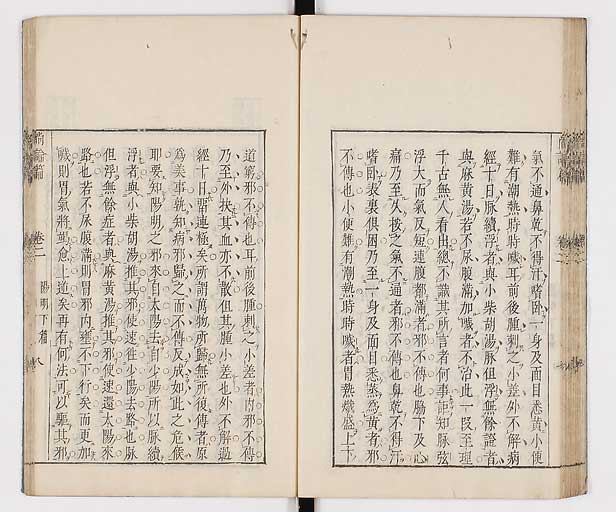 氣不通鼻乾不得汗嗜卧一身及面目悉黃小便
難有潮熱時時噦耳前後腫刺之小差外不解病
經十日脉續浮者與小柴胡湯脉但浮無餘證者
與麻黃湯若不尿腹滿加噦者不治此一叚至理
千古無人看出總不識其所言者何事詎知脉弦
浮大而氣反短連腹都滿者邪不傳也脇下及心
痛乃至久按之氣不通者邪不傳也鼻乾不得汗
嗜卧表裏俱困乃至一身及面目悉蒸為黃者邪
不傳也小便難有潮熱時時噦者胃熱熾盛上下
道窮邪不傳也耳前後腫刺之小差者內邪不傳
乃至外挾其血亦不散但其腫小差也外不解過
經十日留連極矣所謂萬物所歸無所復傳者原
為美事孰知病邪歸之而不傳反成如此之危候
耶要知陽明之邪來自太陽去自少陽所以脉續
浮者與小柴胡湯推其邪使速往少陽去路也脉
但浮無餘症者與麻黃湯推其邪使速還太陽來
路也若不尿腹滿則胃邪內壅不下行矣而更加
噦則胃氣將竭愈上逆矣再有何法可以驅其邪
尚論篇 卷二 陽明下篇 八